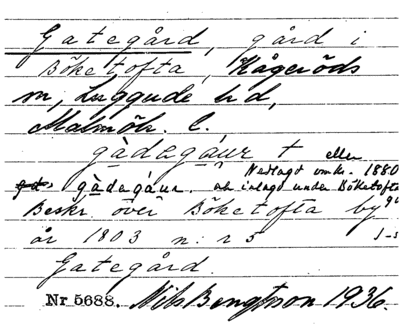 Gategård, gård i
Böketofta, Kågeröds
sn, Luggude hd,
Malmöh. l.
gàdagáur † eller
Nedlagd omkr. 1880
gàdagáur. och inlagd under Böketofta
Beskr över Böketofta by
år 1803 n:r 5
Gategård.
Nr 5688. Nils Bengtsson 1936.